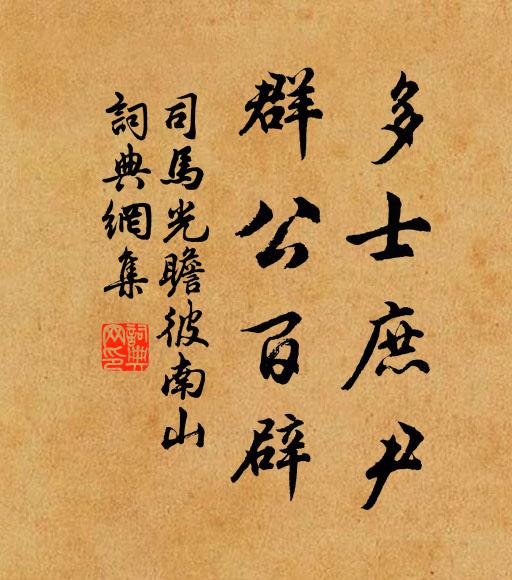 多士庶尹
群公百辟
司馬光瞻彼南山
詞典網集
詞典
网印